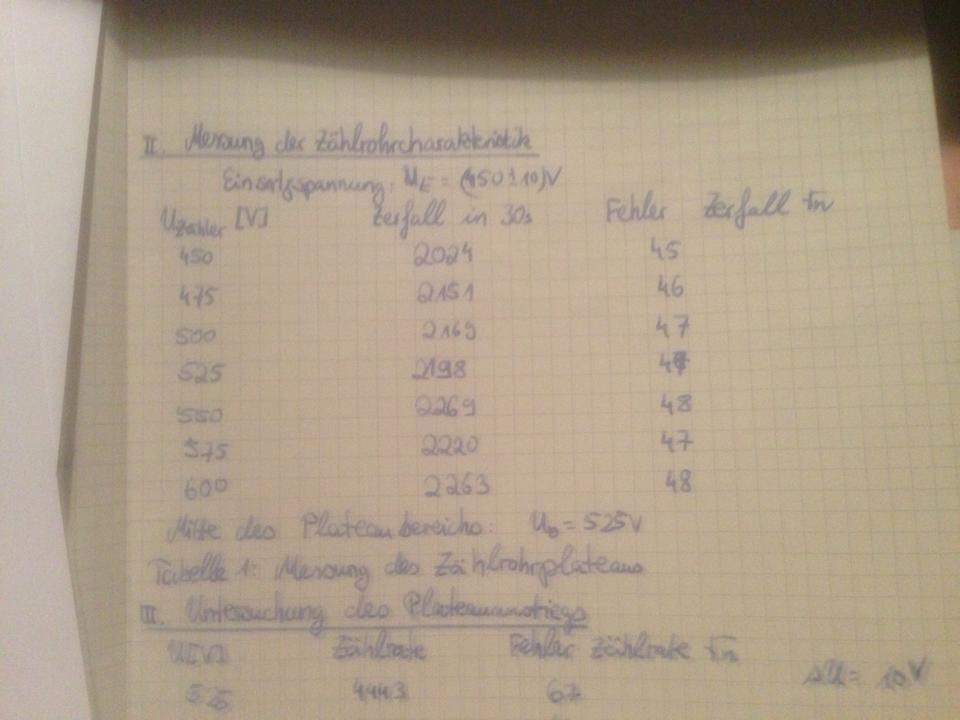 II. Messung der Zählrohrcharakteristik
Einsatzspannung: U_E = (450±10)V
U_Zähler [V] Zerfall in 30s Fehler Zerfall √n
450 2024 45
475 2151 46
500 2169 47
525 2198 47
550 2269 48
575 2220 47
600 2263 48
Mitte des Plateaubereichs: U_0 = 525V
Tabelle 1: Messung des Zählrohrplateaus
III. Untersuchung des Plateauanstiegs
U[V] Zählrate Fehler Zählrate √n
525 4443 67 ΔU = 10V